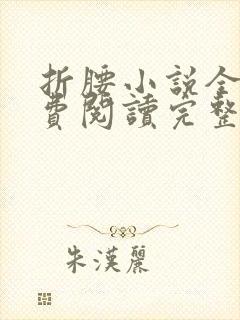 折腰小説全
費閱讀完整
朱漢麗